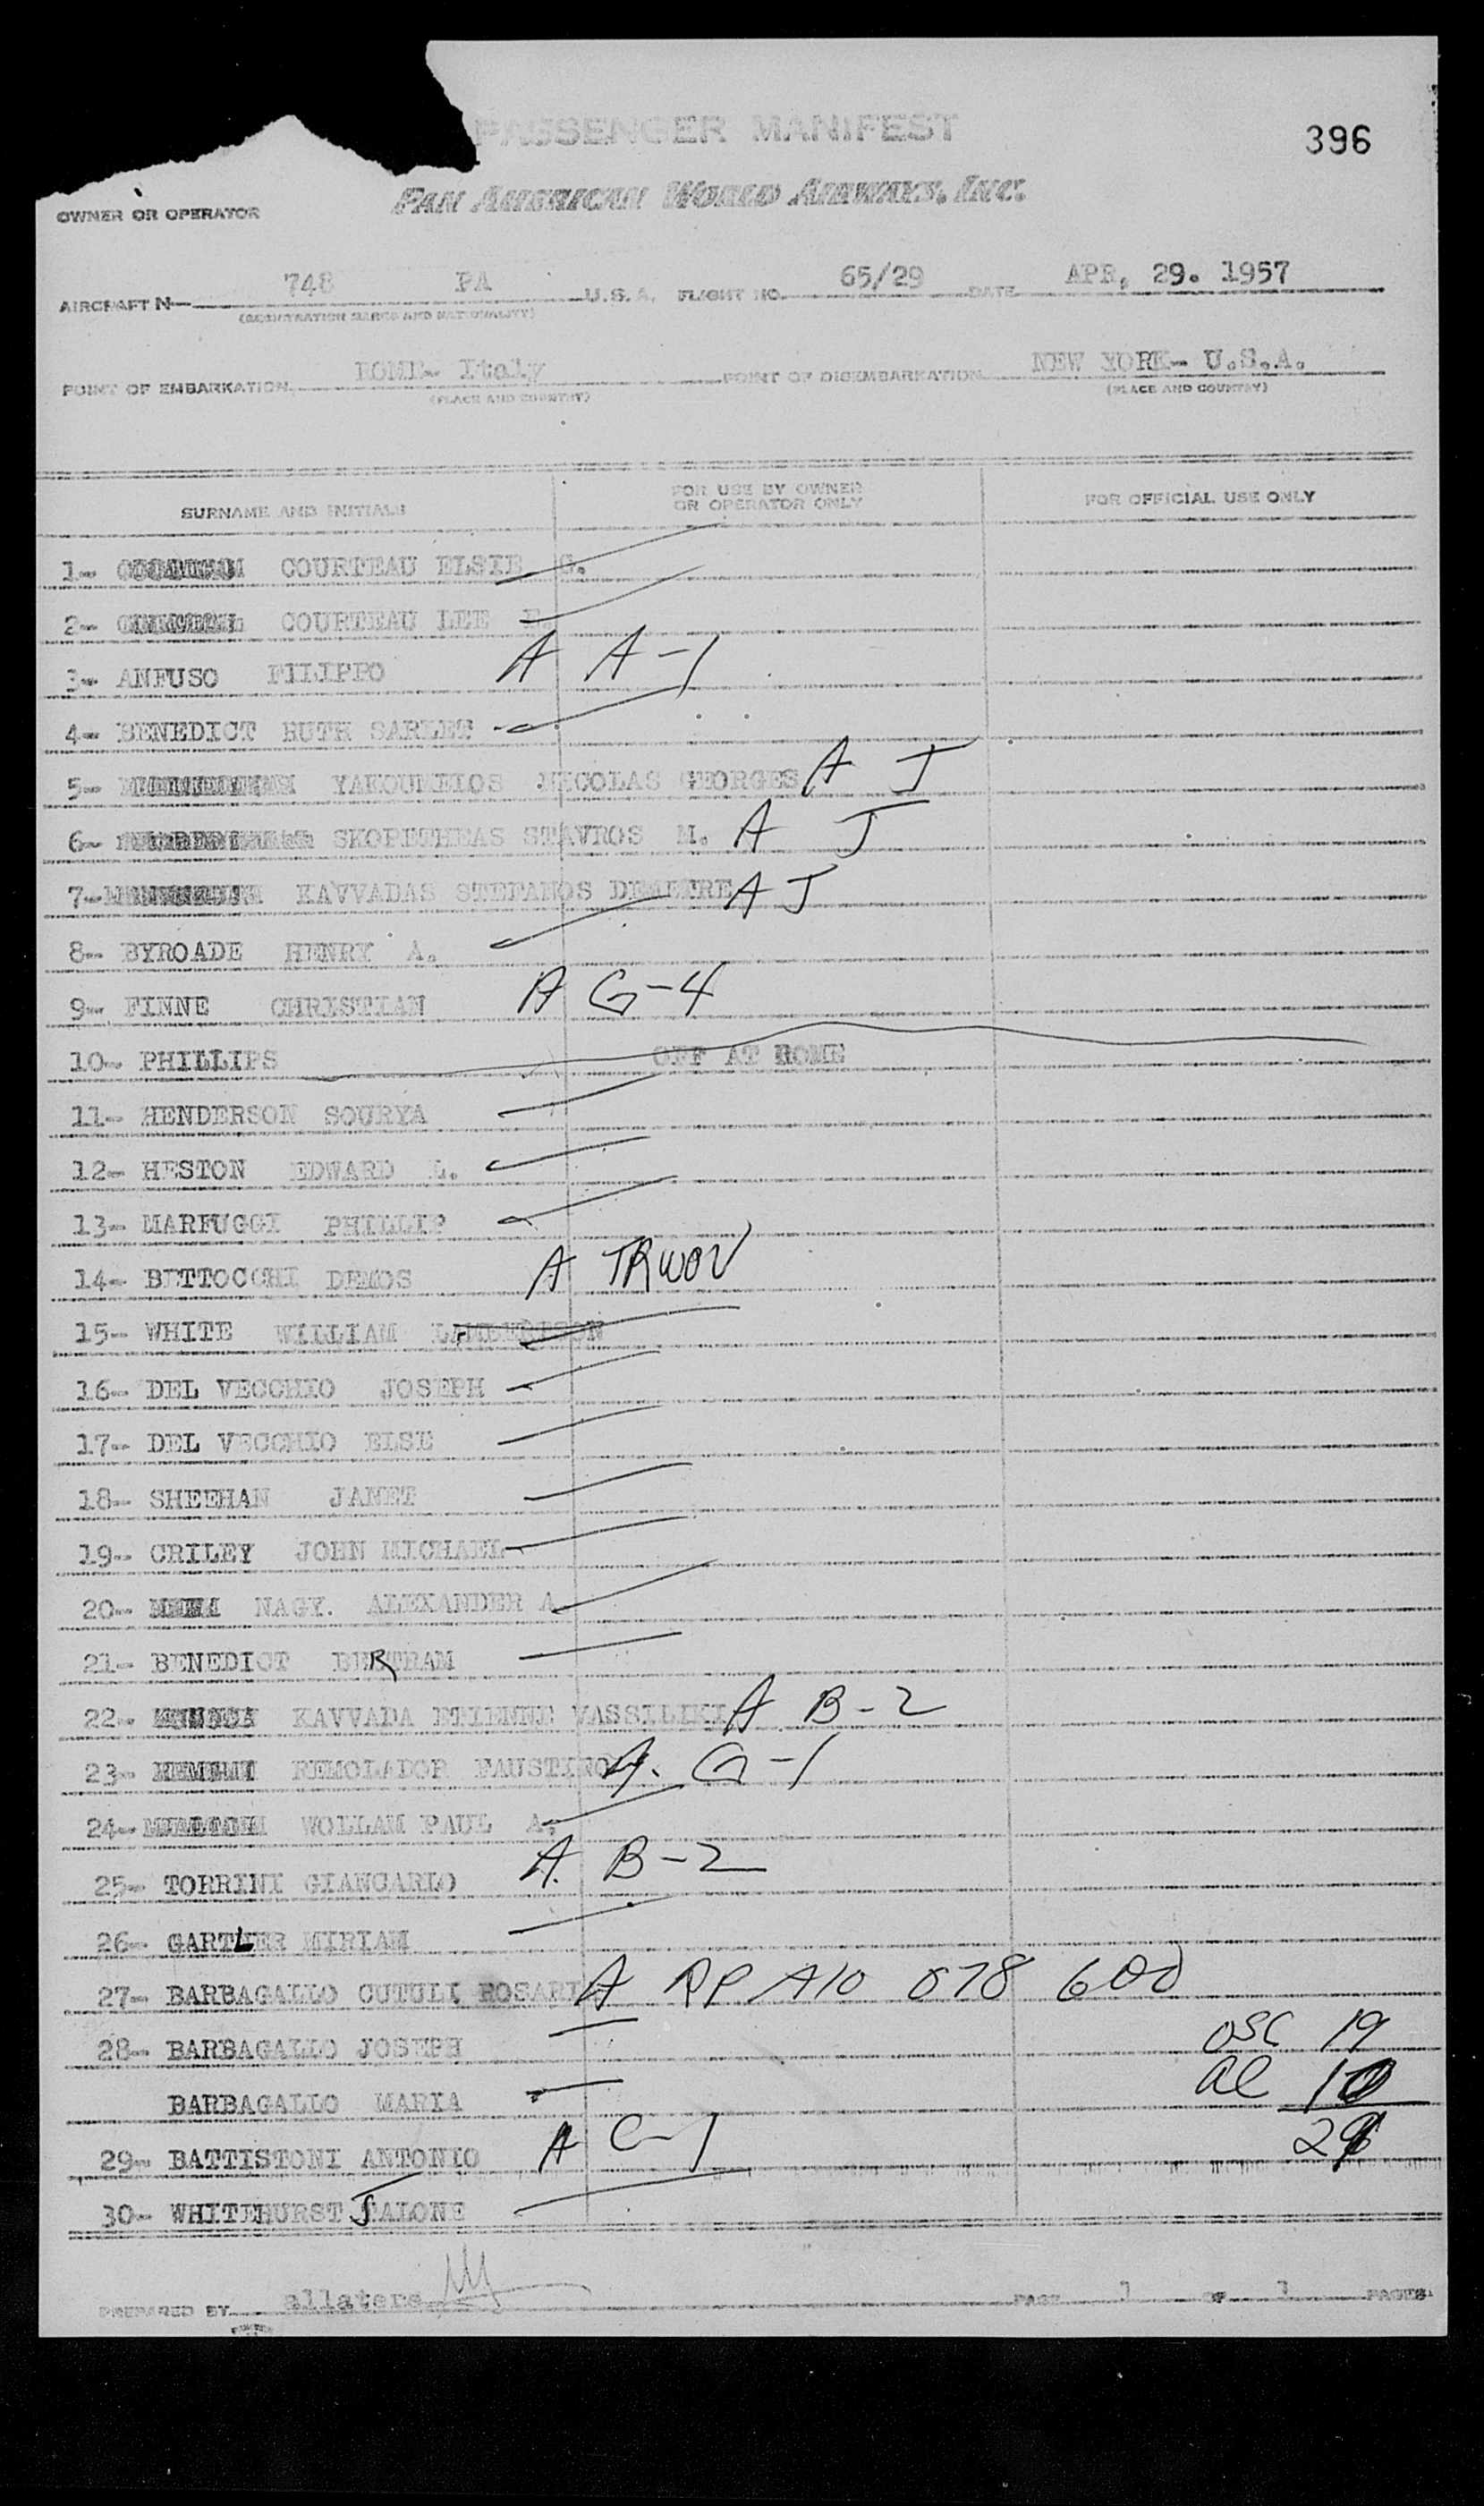 PASSENGER MANIFEST
396
PAN AMERICAN WORLD AIRWAYS, INC.
OWNER OR OPERATOR
AIRCRAFT N— 748 PA U.S.A. FLIGHT NO. 65/29 DATE APR, 29. 1957
(REGISTRATION MARKS AND NATIONALITY)
POINT OF EMBARKATION ROME- Italy POINT OF DISEMBARKATION NEW YORK- U.S.A.
(PLACE AND COUNTRY) (PLACE AND COUNTRY)
SURNAME AND INITIALS FOR USE BY OWNER OR OPERATOR ONLY FOR OFFICIAL USE ONLY
1- COURTEAU ELSIE G.
2- COURTEAU LEE
3- ANFUSO FILIPPO A A-1
4- BENEDICT RUTH SARLET
5- YAKOUMELOS NICOLAS GEORGES A J
6- SKOPETHEAS STAVROS M. A J
7- KAVVADAS STEFANOS DEMETRE A J
8- BYROADE HENRY A.
9- FINNE CHRISTIAN A G-4
10- PHILLIPS OFF AT ROME
11- HENDERSON SOURYA
12- HESTON EDWARD L.
13- MARFUGGI PHILLIP
14- BITTOCCHI DEMOS A TRWOV
15- WHITE WILLIAM LAMBERTSON
16- DEL VECCHIO JOSEPH
17- DEL VECCHIO ELSE
18- SHEEHAN JANET
19- CRILEY JOHN MICHAEL
20- NAGY. ALEXANDER A
21- BENEDICT BERTRAM
22- KAVVADA ETIENNE VASSILIKI A B-2
23- REMOLADOR FAUSTINO A. G-1
24- WOLLAM PAUL A.
25- TORRINI GIANCARLO A. B-2
26- GARTLER MIRIAM
27- BARBAGALLO CUTULI ROSARIA A RP A10 878 600
28- BARBAGALLO JOSEPH USC 19
BARBAGALLO MARIA al 10
29- BATTISTONI ANTONIO A C-1 29
30- WHITEHURST JALONE
PREPARED BY allatere PAGE 1 OF 1 PAGES